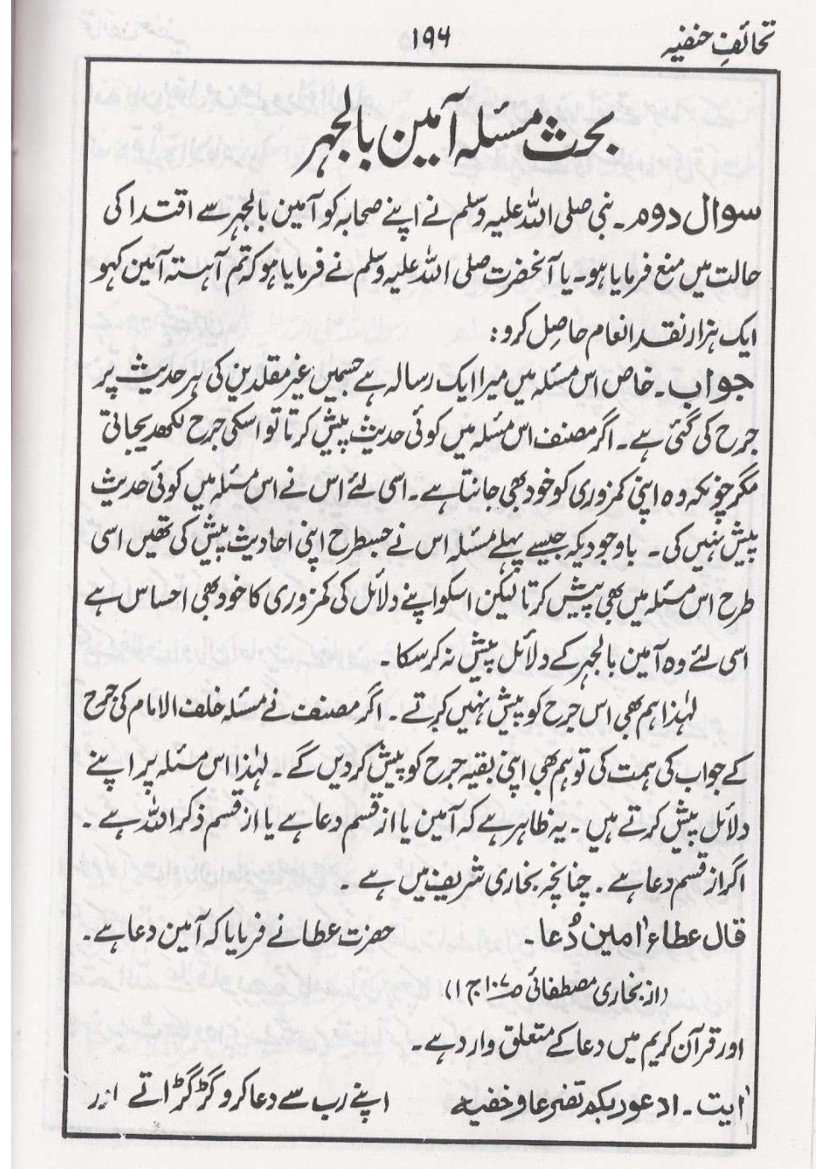 تحائفِ حنفیہ
۱۹۴
بحث مسئلہ آمین بالجہر
سوال دوم۔ نبی صلی اللہ علیہ وسلم نے اپنے صحابہ کو آمین بالجہر سے اقتدا کی
حالت میں منع فرمایا ہو۔ یا آنحضرت صلی اللہ علیہ وسلم نے فرمایا ہو کہ تم آہستہ آمین کہو
ایک ہزار نقد انعام حاصل کرو:
جواب۔ خاص اس مسئلہ میں میرا ایک رسالہ ہے جسمیں غیر مقلدین کی ہر حدیث پر
جرح کی گئی ہے۔ اگر مصنف اس مسئلہ میں کوئی حدیث پیش کرتا تو اسکی جرح لکھدیجاتی
مگر چونکہ وہ اپنی کمزوری کو خود بھی جانتا ہے۔ اسی لئے اس نے اس مسئلہ میں کوئی حدیث
پیش نہیں کی۔ باوجودیکہ جیسے پہلے مسئلہ اس نے جسطرح اپنی احادیث پیش کی تھیں اسی
طرح اس مسئلہ میں بھی پیش کرتا لیکن اسکو اپنے دلائل کی کمزوری کا خود بھی احساس ہے
اسی لئے وہ آمین بالجہر کے دلائل پیش نہ کر سکا۔
لہٰذا ہم بھی اس جرح کو پیش نہیں کرتے۔ اگر مصنف نے مسئلہ خلف الامام کی جرح
کے جواب کی ہمت کی تو ہم بھی اپنی بقیہ جرح کو پیش کر دیں گے۔ لہٰذا اس مسئلہ پر اپنے
دلائل پیش کرتے ہیں۔ یہ ظاہر ہے کہ آمین یا از قسم دعا ہے یا از قسم ذکر اللہ ہے۔
اگر از قسم دعا ہے۔ چنانچہ بخاری شریف میں ہے۔
قال عطاء اٰمین دُعا۔ حضرت عطا نے فرمایا کہ آمین دعا ہے۔
(از بخاری مصطفائی صـ۱۰۷ ج ۱)
اور قرآن کریم میں دعا کے متعلق وارد ہے۔
اٰیت۔ ادعو ربکم تضرعا و خفیہ اپنے رب سے دعا کرو گڑگڑاتے اور